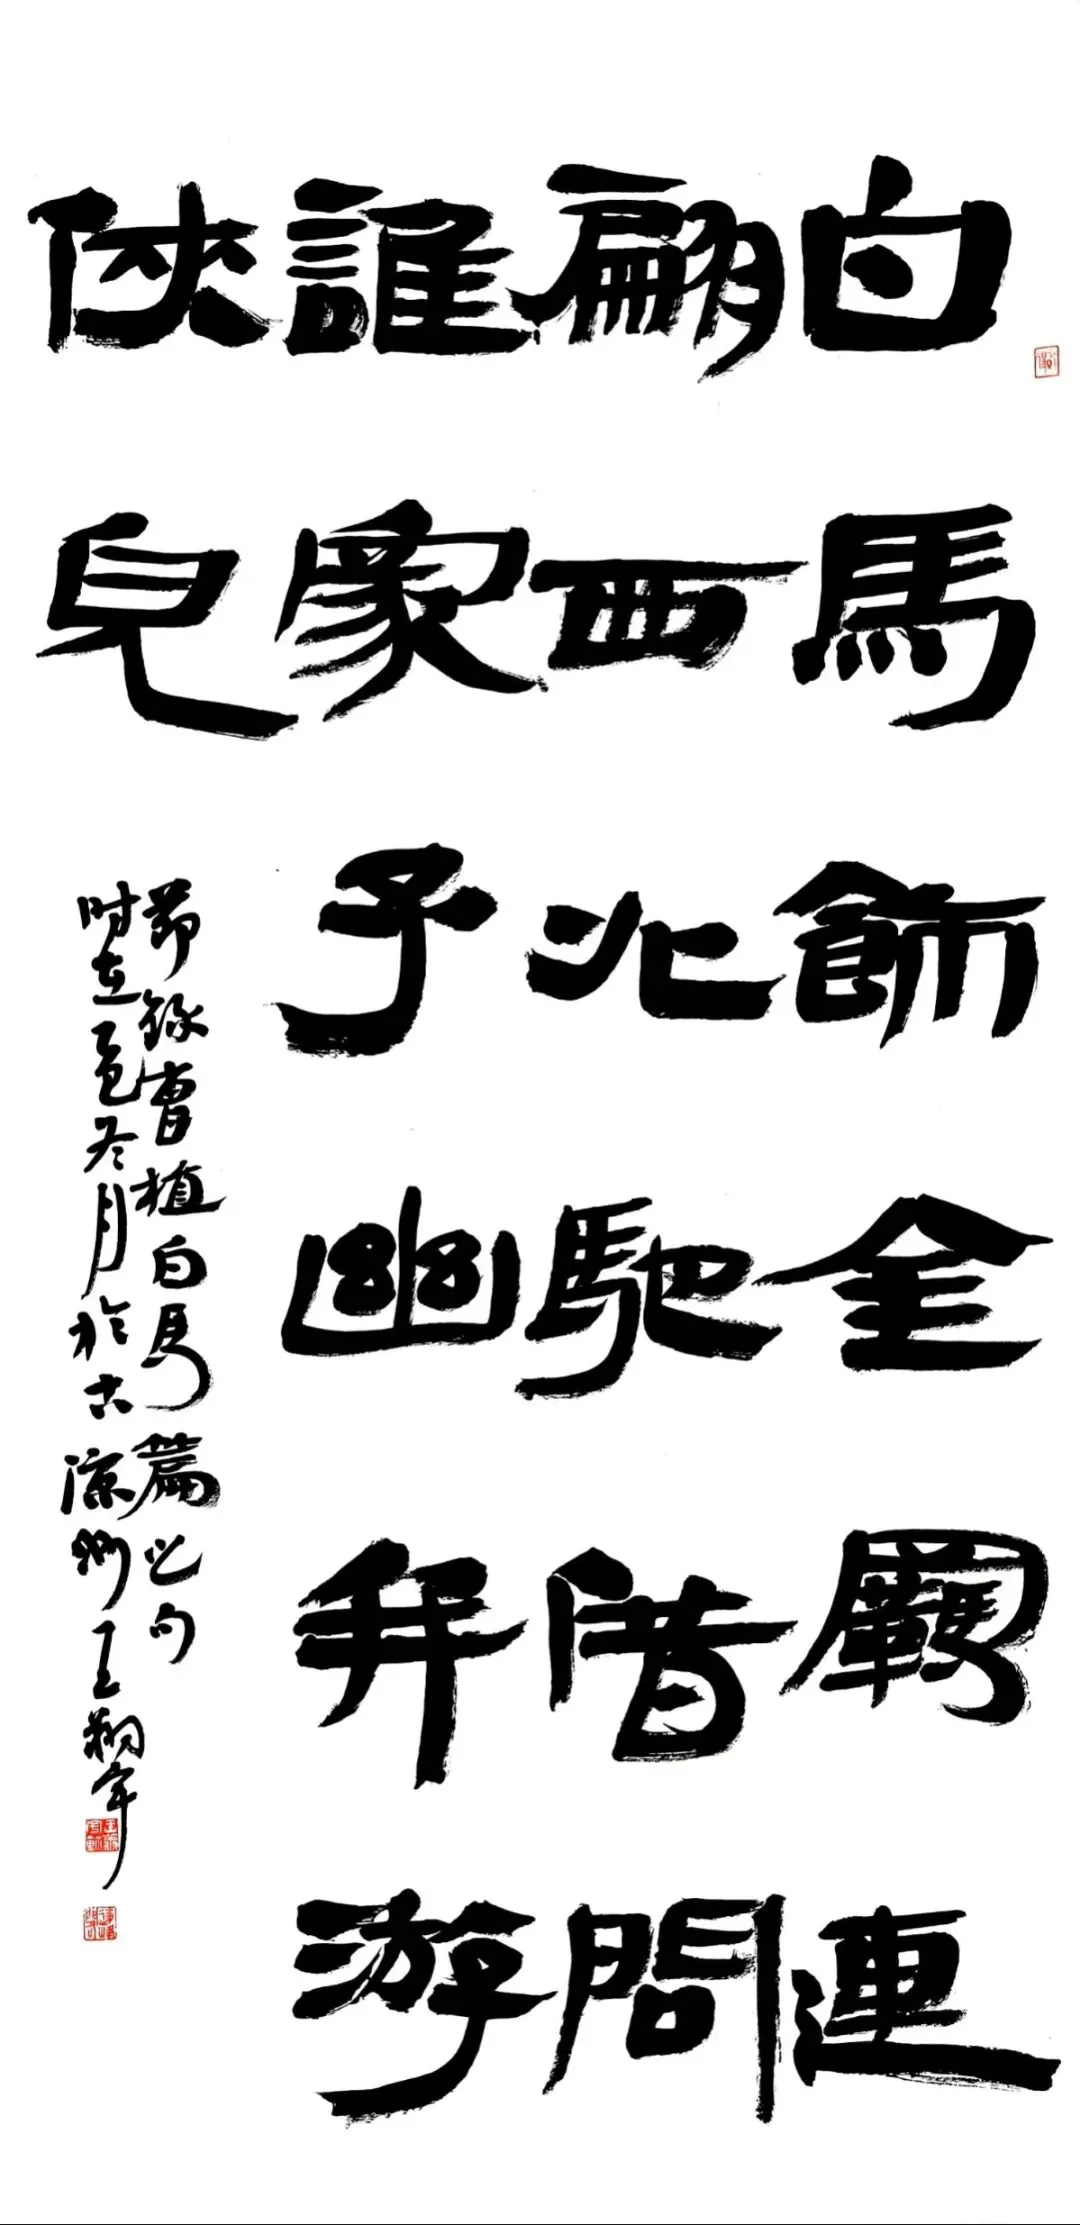 白馬飾金羈連
翩西北馳借問
誰家子幽并游
俠兒
節錄曹植白馬篇之句
时在乙巳冬月於古涼州王翔宇